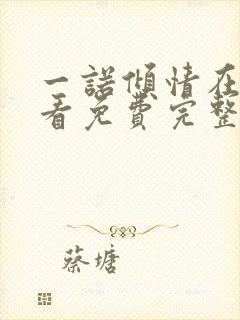 一諾傾情在
看免費完整
蔡塘